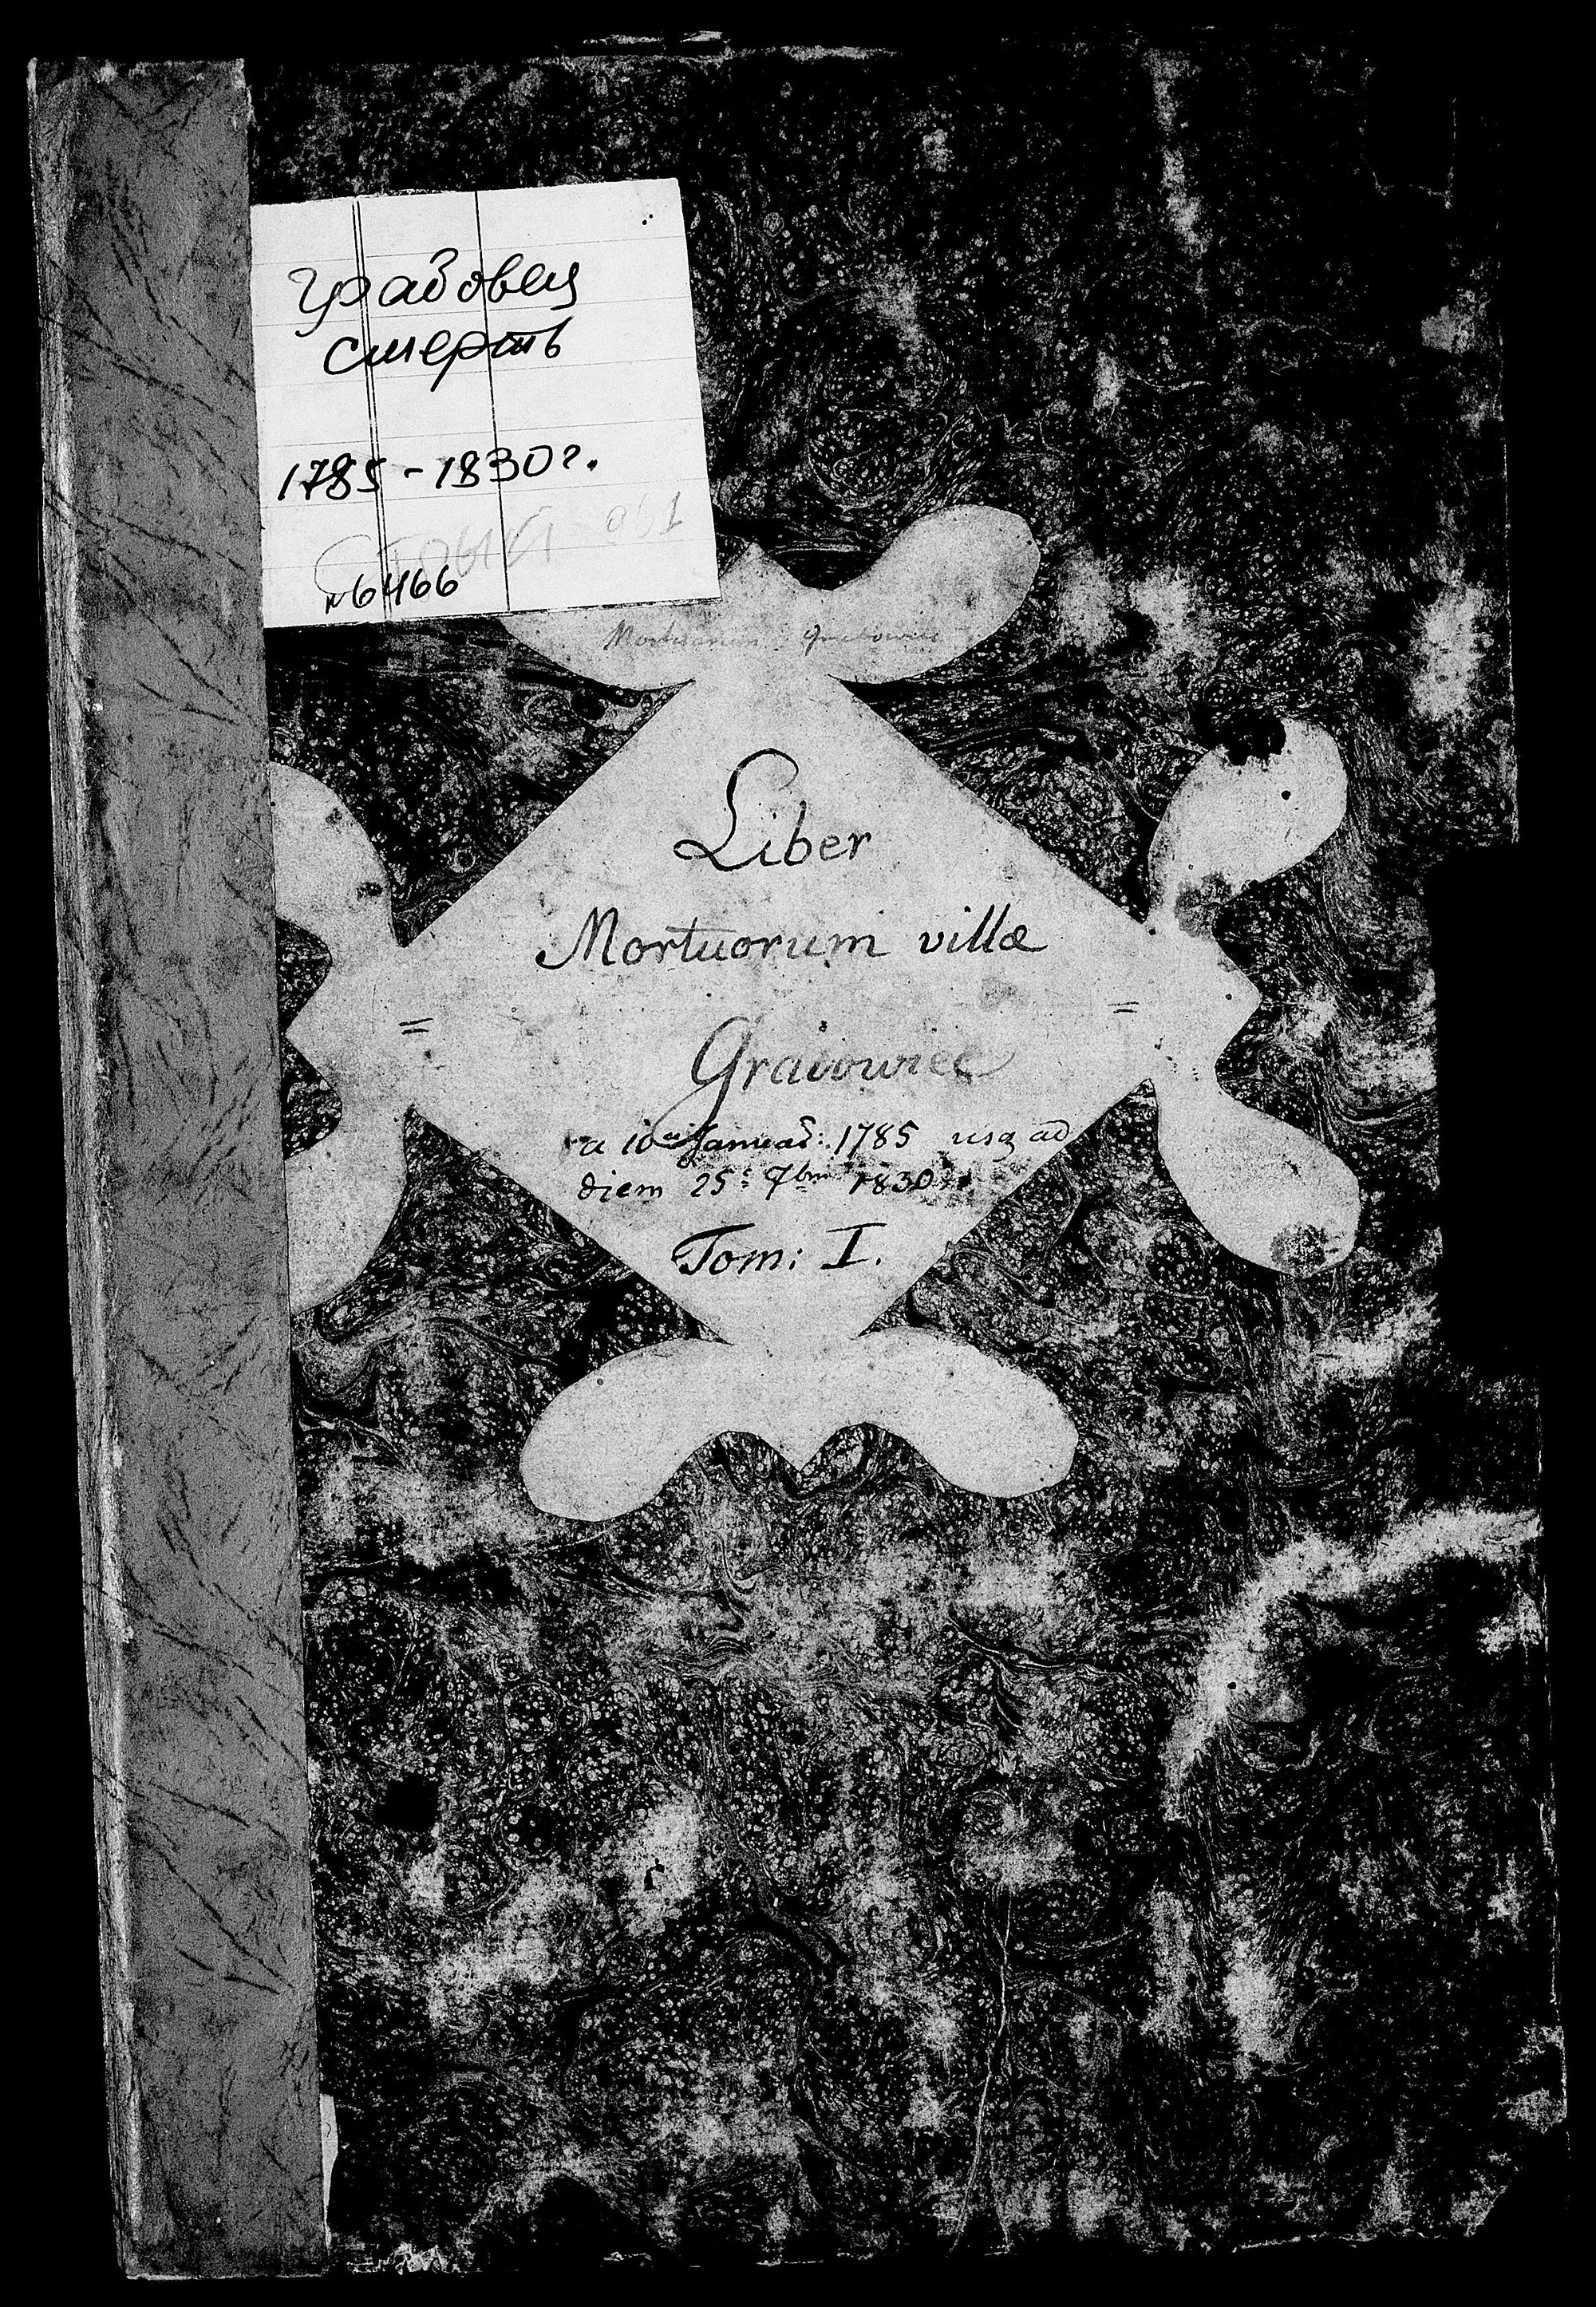 Грабовец
смерть
1785-1830г.
Стрый 051
№6466
Mortuorum Grabowiec
Liber
Mortuorum villæ
= =
Grabowiec
a 10a Januar: 1785 usq ad
diem 25: 7bris 1830
Tom: I.